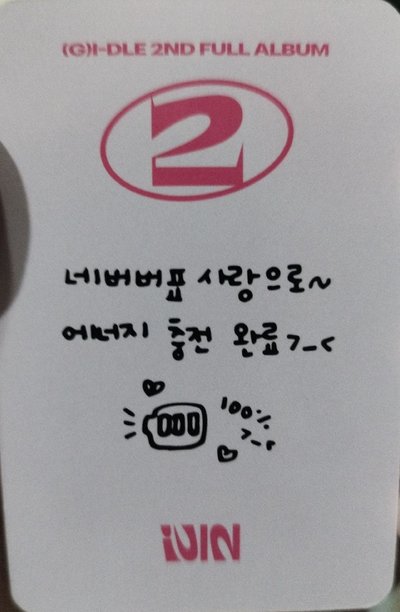 (G)I-DLE 2ND FULL ALBUM
2
네버버표 사랑으로~
에너지 충전 완료>_<
100%
>_<